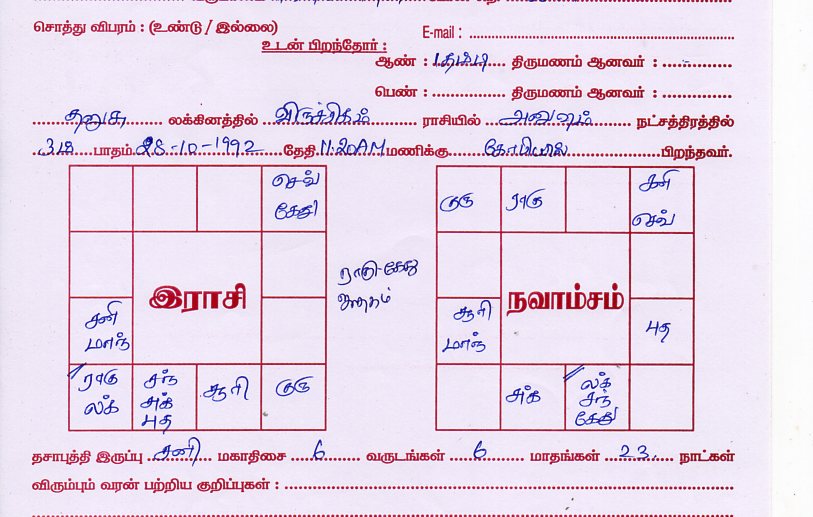 சொத்து விபரம் : (உண்டு / இல்லை) E-mail :
உடன் பிறந்தோர் :
ஆண் : 1 தம்பி திருமணம் ஆனவர் : -
பெண் : திருமணம் ஆனவர் :
தனுசு லக்கினத்தில் விருச்சிகம் ராசியில் அனுஷம் நட்சத்திரத்தில்
3ம் பாதம் 28-10-1992 தேதி 11:20AM மணிக்கு பிறந்தவர்.
செவ்
கேது
சனி
மாந்
இராசி
ராகு
லக்
சந்
சுக்
புத
சூரி
குரு
ராகு-கேது
ஜாதகம்
குரு
ராகு
சனி
செவ்
சூரி
மாந்
நவாம்சம்
புத
சுக்
லக்
சந்
கேது
தசாபுத்தி இருப்பு சனி மகாதிசை 6 வருடங்கள் 6 மாதங்கள் 23 நாட்கள்
விரும்பும் வரன் பற்றிய குறிப்புகள் :